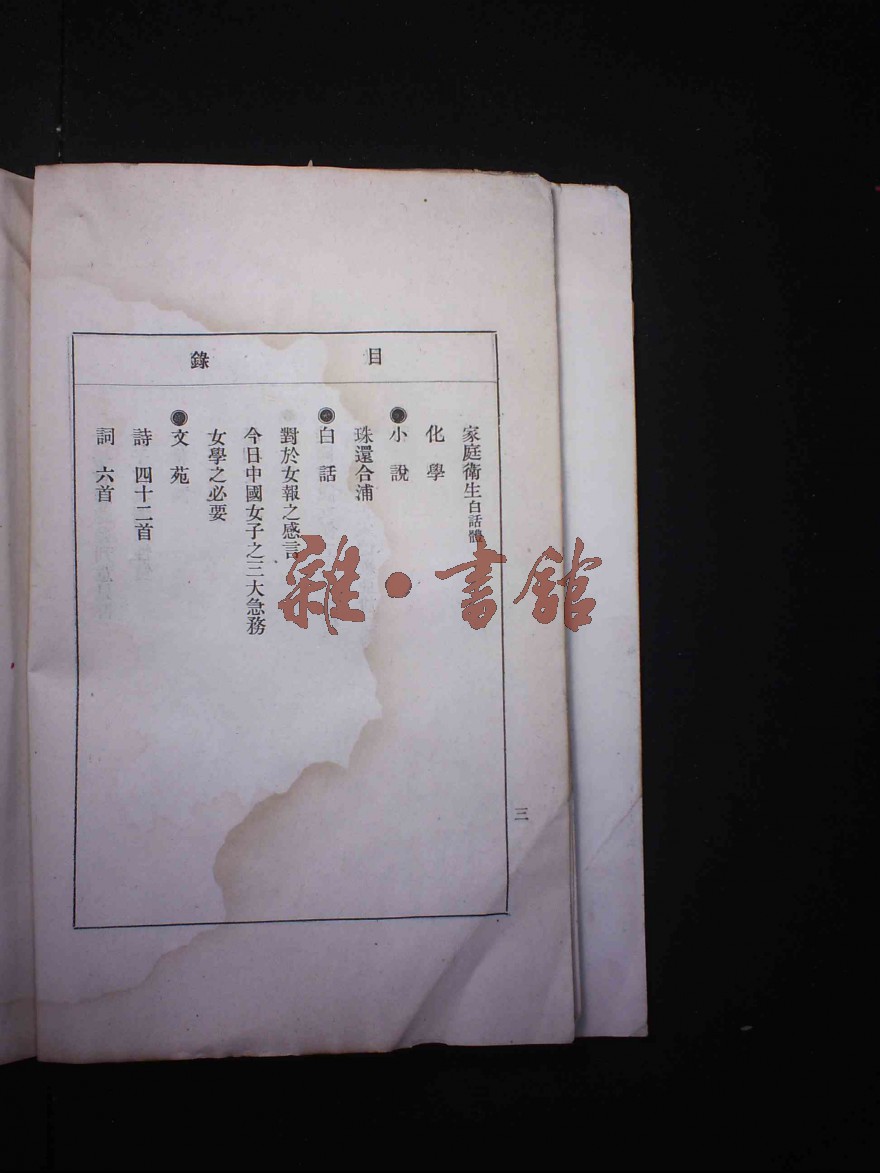 目錄
家庭衛生白話體
化學
小說
珠還合浦
白話
對於女報之感言
今日中國女子之三大急務
女學之必要
文苑
詩 四十二首
詞 六首
三
雜·書館